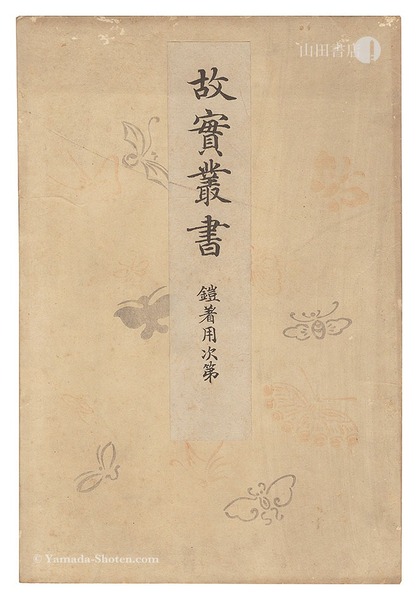 山田書店
故實叢書
鎧着用次第
© Yamada-Shoten.com